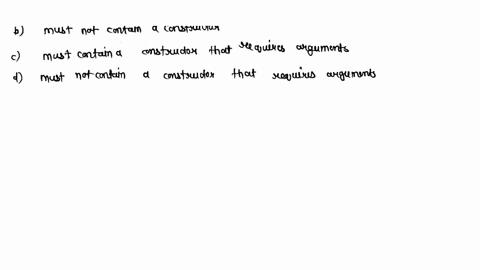 b) must not contain a constructor
c) must contain a constructor that requires arguments
d) must not contain a constructor that requires arguments